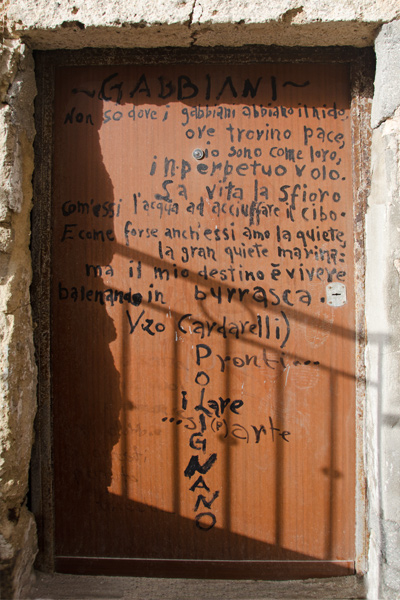 ~GABBIANI~
Non so dove i gabbiani abbiano il nido,
ove trovino pace,
io sono come loro,
in perpetuo volo.
La vita la sfioro
Com'essi l'acqua ad acciuffare il cibo.
E come forse anch'essi amo la quiete,
la gran quiete marina:
ma il mio destino è vivere
balenando in burrasca.
Vzo Cardarelli)
Pronti...
ilare
arte
POLIGNANO